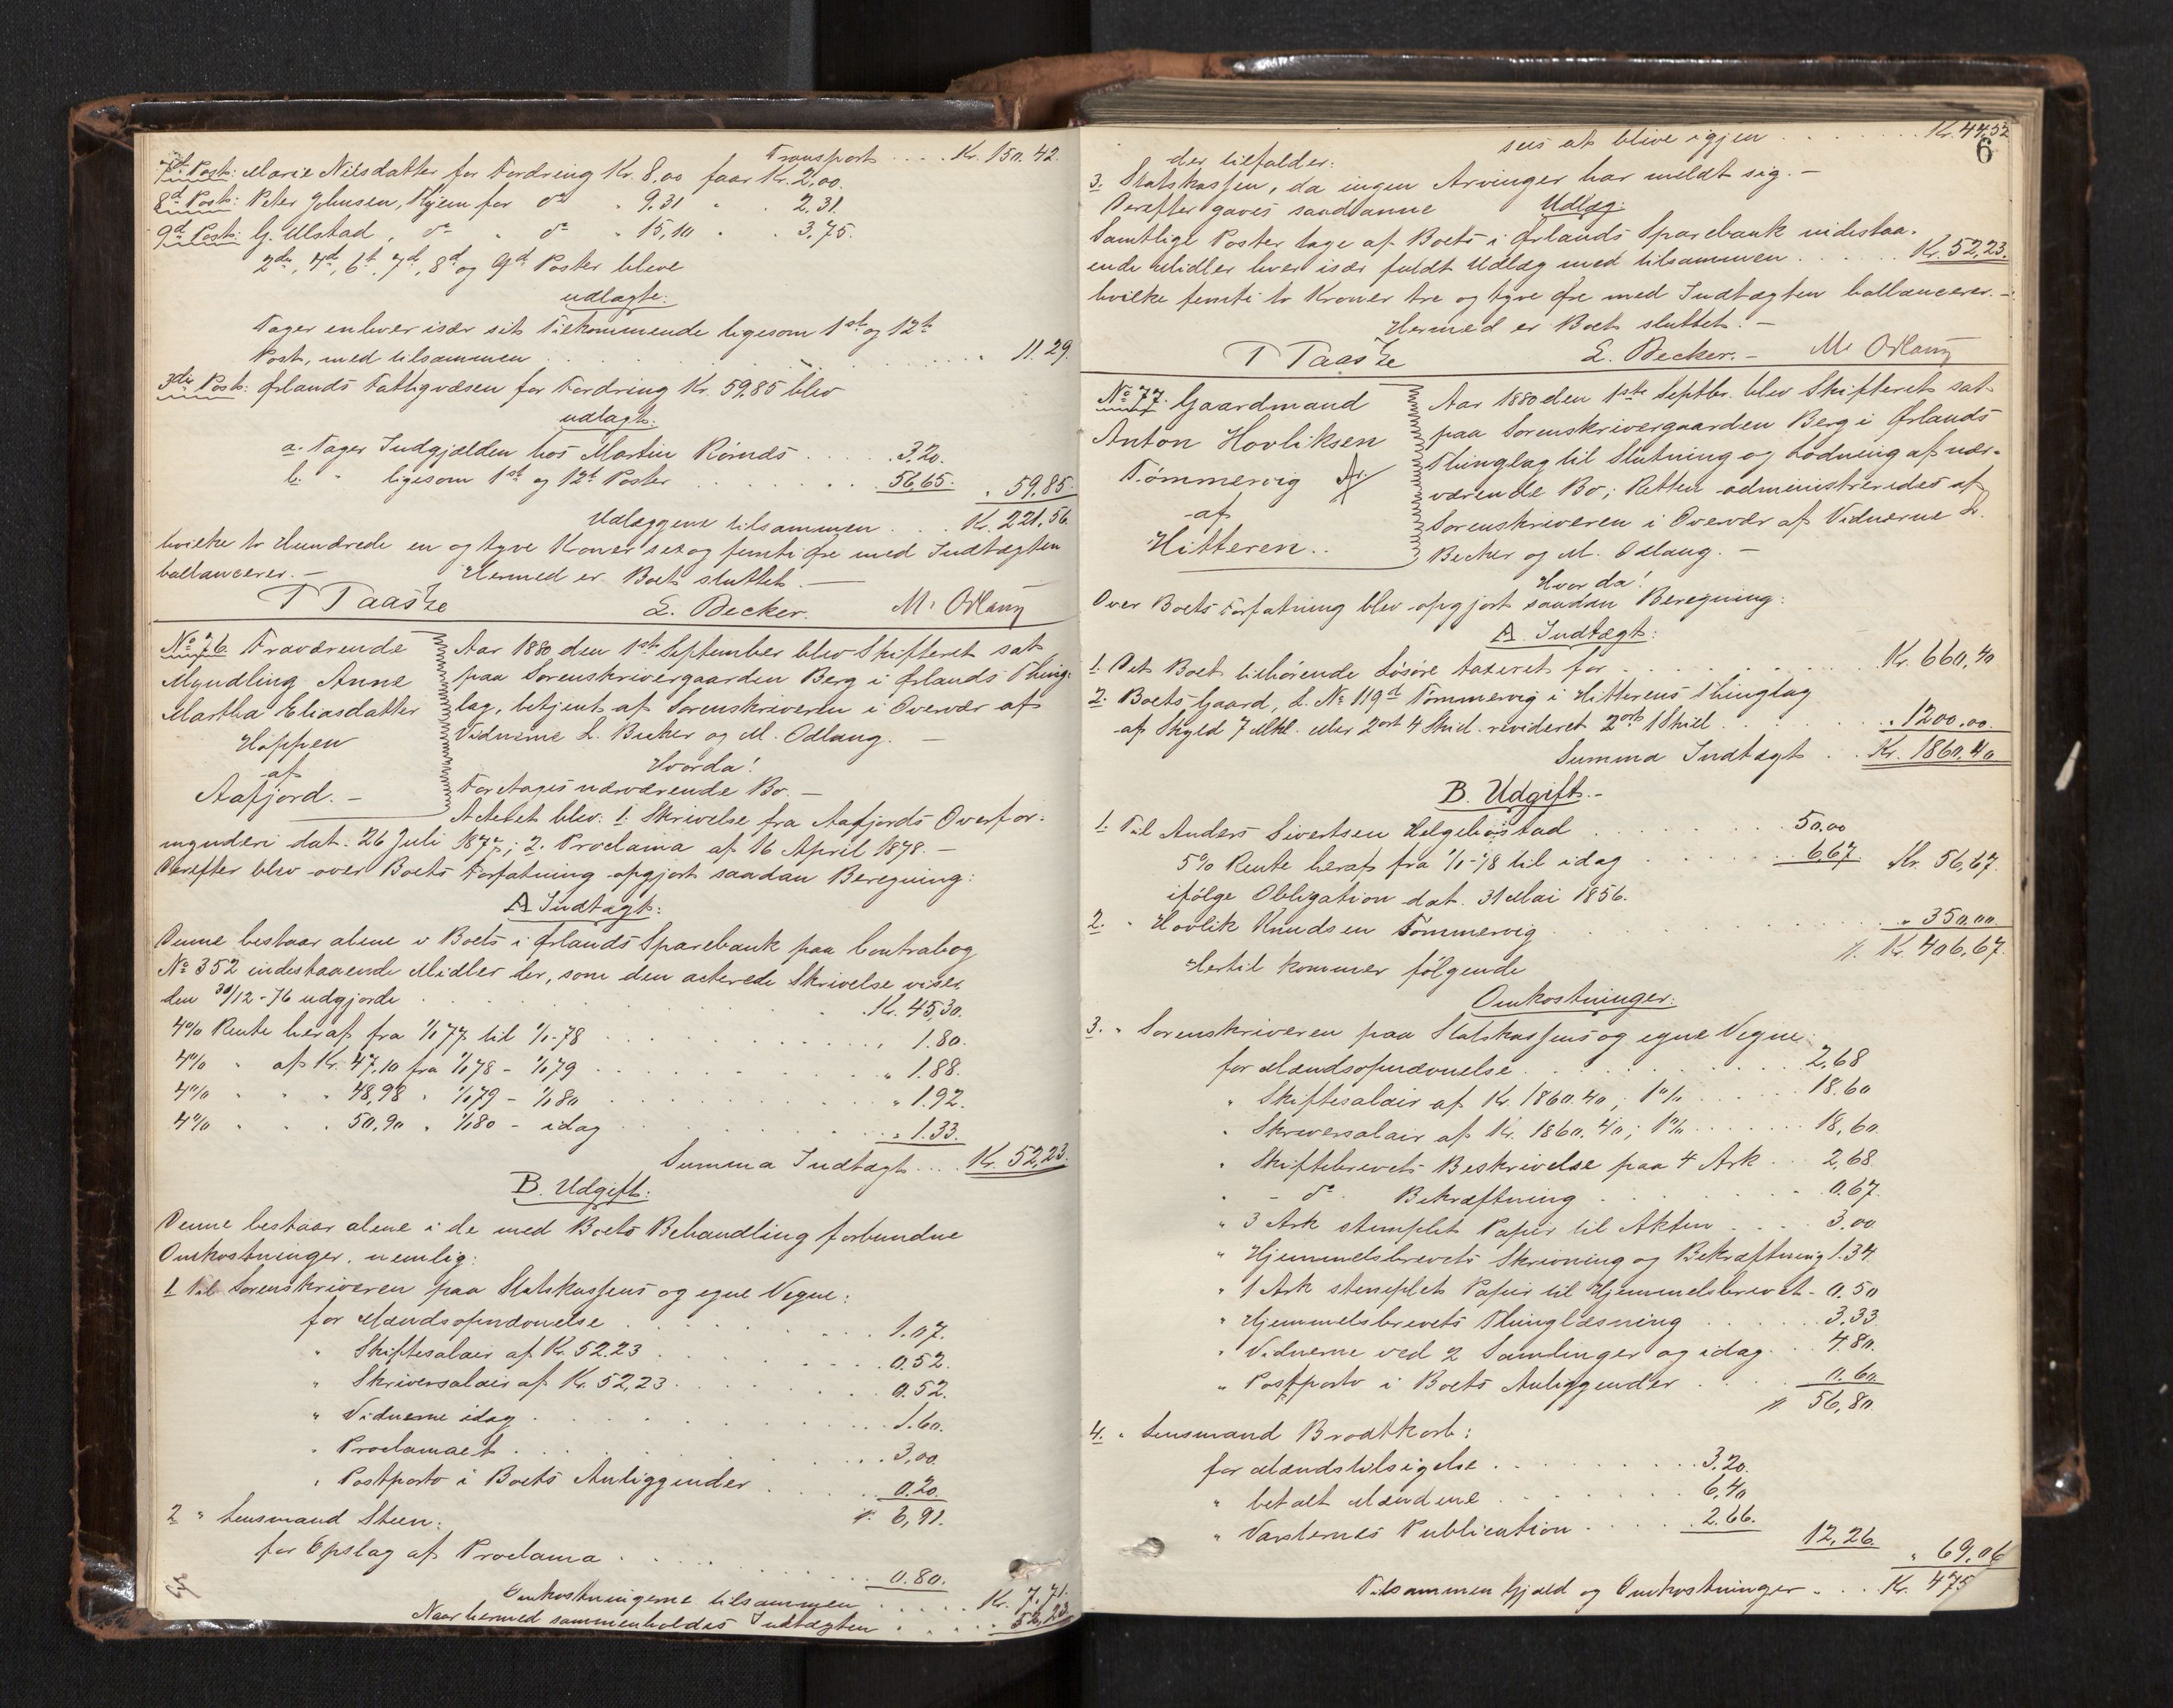 Transport .... Kr. 150.42.
7de Post: Marie Nilsdatter for Fordring Kr. 8.00 faar Kr. 2,00.
8d Post: Peter Johnsen, Hjem for do " 9.31 " . 2.31.
9d Post: G. Ulstad, do " do " 15,10 " . 3.75.
2den, 4d, 6t, 7d, 8d og 9d Poster bleve
udlagte:
Tager enhver især sit Tilkommende ligesom 1st og 12te
Post, med tilsammen . . . . " 11.29.
3die Post: Ørlands Fattigvæsen for Fordring Kr. 59,85 blev
udlagt:
a. Tager Indgjælden hos Martin Rømds . . . 3.20.
b. " ligesom 1st og 12t Poster . . . 56,65. " 59,85.
Udlæggene tilsammen . . . Kr. 221,56.
hvilke to Hundrede en og tyve Kroner sex og femti Øre med Indtægten
ballancerer. — Hermed er Boet sluttet. —
T Taasze L. Becker. M. Odlaug
No 76. Fraværende
Myndling Anne
Martha Eliasdatter
Hoppen
af
Aafjord. —
Aar 1880 den 1ste September blev Skifteret sat
paa Sorenskrivergaarden Berg i Ørlands Thing-
lag, betjent af Sorenskriveren i Overvær af
Vidnerne L. Becker og M. Odlaug. —
Hvorda!
Foretages nærværende Bo. —
Acteret blev: 1. Skrivelse fra Aafjords Overfor-
mynderi dat. 26 Juli 1877; 2. Proclama af 16 April 1878. —
Derefter blev over Boets Forfatning opgjort saadan Beregning:
A Indtægt:
Denne bestaar alene i Boets i Ørlands Sparebank paa Contrabog
No 352 indestaaende Midler der, som den acterede Skrivelse viser
den 30/12-76 udgjorde . . . Kr. 45,30.
4% Rente heraf fra 1/1 77 til 1/1-78 . . . " 1.80.
4% " af Kr. 47.10 fra 1/1 78 - 1/1 79 . . . " 1.88.
4% " " " 48,98 " 1/1 79 - 1/1 80 . . . " 1.92.
4% " " " 50,90 " 1/1 80 - idag . . . " 1.33.
Summa Indtægt ... Kr. 52,23.
B. Udgift:
Denne bestaar alene i de med Boets Behandling forbundne
Omkostninger, nemlig:
1 Til Sorenskriveren paa Statskassens og egne Vegne:
for Mændsopnævnelse . . . 1.07.
" Skiftesalair af Kr. 52.23 . . . 0.52.
" Skriversalair af Kr. 52,23 . . . 0.52.
" Vidnerne idag . . . 1.60.
" Proclamaet . . . 3,00
" Postporto i Boets Anliggender . . . 0.20.
6,91.
2 " Lensmand Steen:
for Opslag af Proclama . . . 0.80.
Omkostningerne tilsammen . . . Kr. 7,71.
Naar hermed sammenholdes Indtægten . . . 52,23
sees at blive igjen . . . Kr. 44,52
6
der tilfalder:
3. Statskassen, da ingen Arvinger har meldt sig. —
Derefter gaves saadanne Udlæg:
Samtlige Poster tage af Boets i Ørlands Sparebank indestaa-
ende Midler hver især fuldt Udlæg med tilsammen . . . Kr. 52,23.
hvilke femti to Kroner tre og tyve Øre med Indtægten ballancerer. —
Hermed er Boet sluttet. —
T Taasze L. Becker. — M. Odlaug
No 77. Gaardmand
Anton Hovliksen
Tømmervig
af
Hitteren..
Aar 1880 den 1ste Septbr. blev Skifteret sat
paa Sorenskrivergaarden Berg i Ørlands
Thinglag til Slutning og Lødning af nær-
værende Bo; Retten administreredes af
Sorenskriveren i Overvær af Vidnerne L.
Becker og M. Odlaug. —
Hvorda!
Over Boets Forfatning blev opgjort saadan Beregning:
A Indtægt:
1. Det Boet tilhørende Løsøre taxeret for . . . Kr. 660,40
2. Boets Gaard, L. No 119d Tømmervig i Hitterens Thinglag
af Skyld 7 Mkl. eller 2 ort 4 Skil. revideret 2 ort 1 Skil . . . " 1200.00.
Summa Indtægt . . Kr. 1860,40
B. Udgift. —
1. Til Anders Sivertsen Helgebostad . . . 50.00
5% Rente heraf fra 1/1-78 til idag . . . 6,67. Kr. 56,67.
ifølge Obligation dat. 31 Mai 1856.
2. " Hovlik Knudsen Tømmervig . . . " 350.00.
Kr. 406,67.
Hertil kommer følgende
Omkostninger:
3. " Sorenskriveren paa Statskassens og egne Vegne
for Mændsopnævnelse . . . 2,68
" Skiftesalair af Kr. 1860.40; 1% . . . 18.60
" Skriversalair af Kr. 1860.40; 1% . . . 18,60.
" Skiftebrevets Beskrivelse paa 4 Ark . . 2,68
" - do Bekræftning . . . 0.67.
" 3 Ark stemplet Papir til Akten . . . 3.00
" Hjemmelsbrevets Skrivning og Bekræftning 1.34
" 1 Ark stemplet Papir til Hjemmelsbrevet - 0.50
" Hjemmelsbrevets Thinglæsning . . . 3.33.
" Vidnerne ved 2 Samlinger og idag . . 4.80.
" Postporto i Boets Anliggender . . . 0.60
56,80
4. " Lensmand Brodtkorb:
for Mændstilsigelse . . . 3.20.
" betalt Mændene . . . 6,40
" Varslernes Publication . . . 2.66.
12,26 " 69,06
Tilsammen Gjæld og Omkostninger . . . Kr. 475